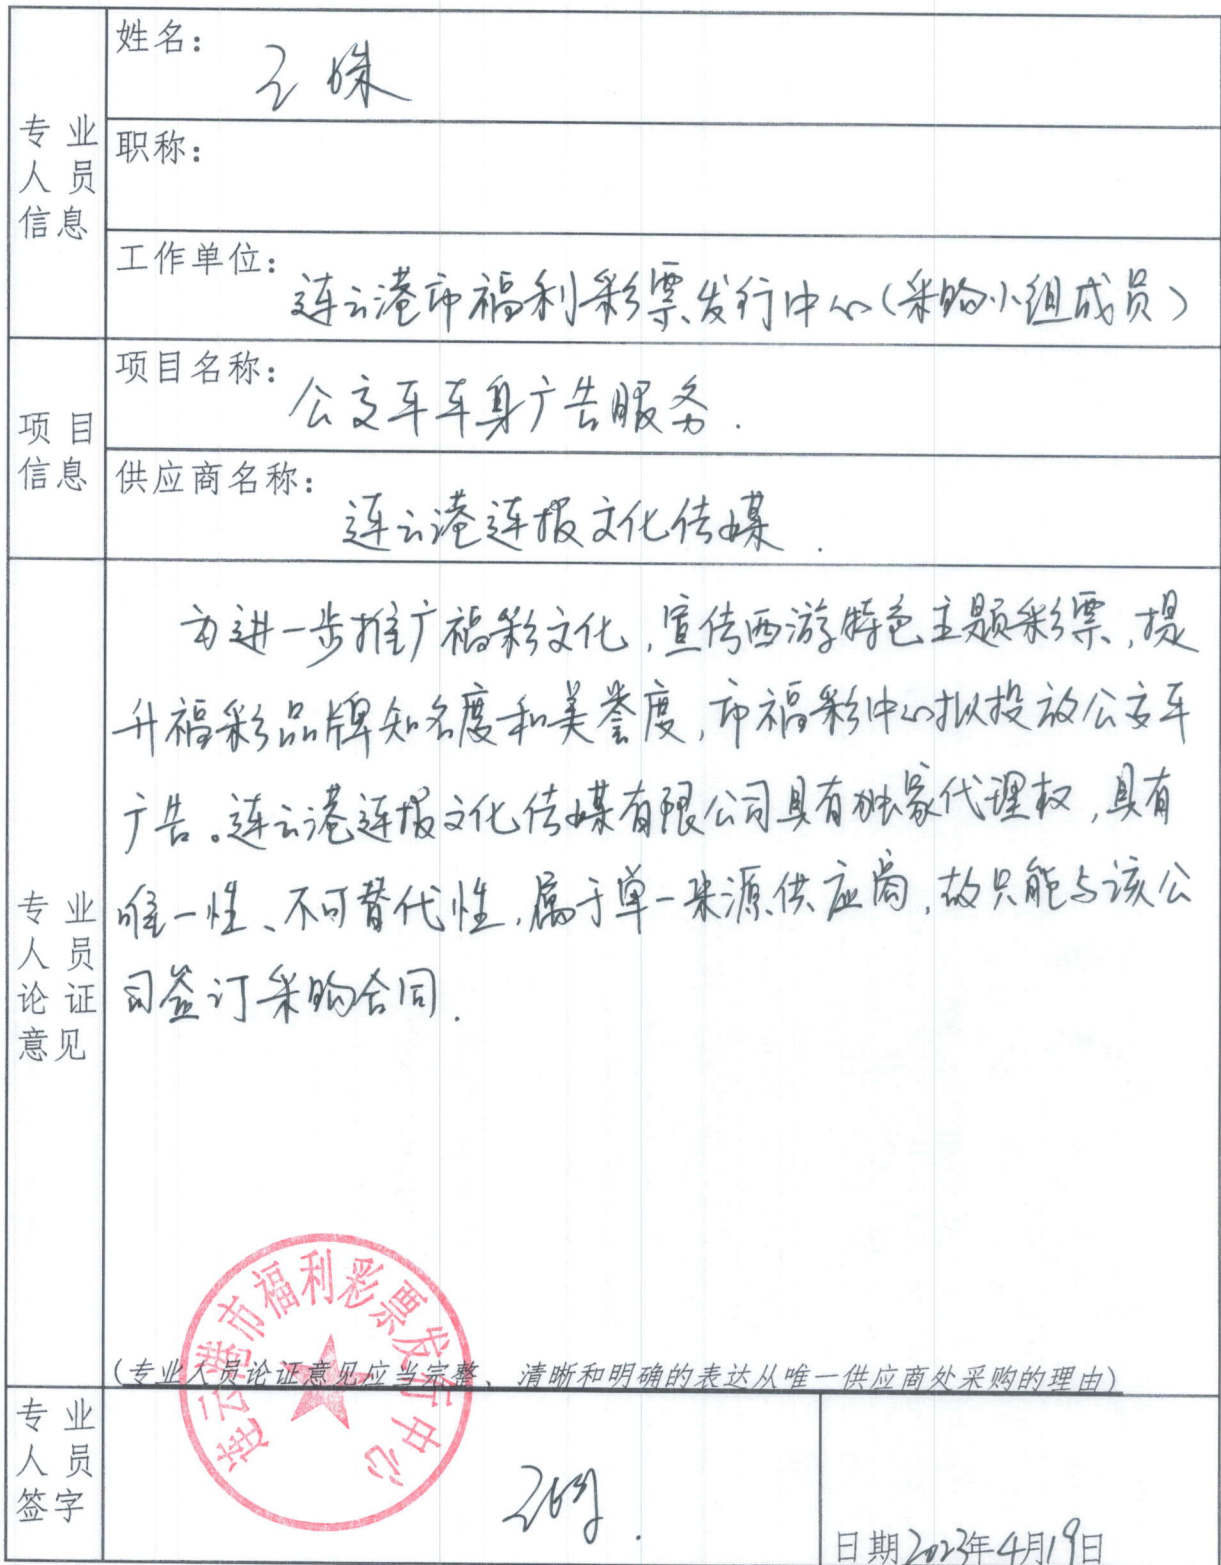 专业人员信息
姓名：王姝
职称：
工作单位：连云港市福利彩票发行中心(采购小组成员)
项目信息
项目名称：公交车车身广告服务.
供应商名称：连云港连报文化传媒.
专业人员论证意见
为进一步推广福彩文化,宣传西游特色主题彩票,提
升福彩品牌知名度和美誉度,市福彩中心拟投放公交车
广告。连云港连报文化传媒有限公司具有独家代理权,具有
唯一性、不可替代性,属于单一来源供应商,故只能与该公
司签订采购合同.
连云港市福利彩票发行中心
(专业人员论证意见应当完整、清晰和明确的表达从唯一供应商处采购的理由)
专业人员签字
日期2023年4月19日